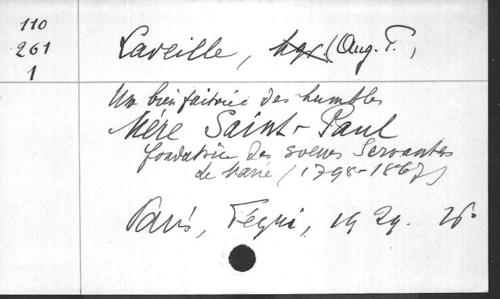 110
261
1
Laveille, Mgr. (Aug. P.,
Une bienfaitrice des humbles
Mère Saint-Paul
fondatrice des soeurs Servantes
de Marie (1798-1867)
Paris, Téqui, 1929.